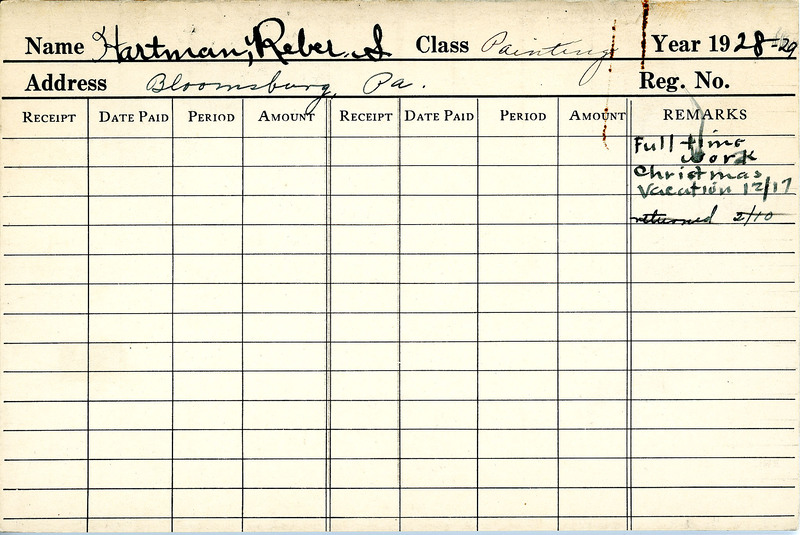 Name Hartman, Reber S Class Painting Year 1928-29
Address Bloomsburg, Pa. Reg. No.
RECEIPT DATE PAID PERIOD AMOUNT RECEIPT DATE PAID PERIOD AMOUNT REMARKS
Full time
work
Christmas
Vacation 12/17
returned 2/10